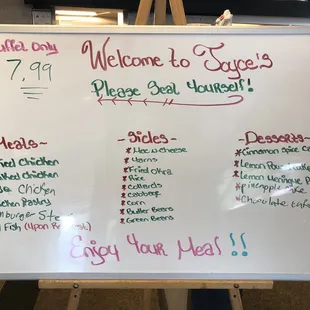 Buffet Only
7.99
Welcome to Joyce's
Please Seat Yourself!
Meals~
Fried Chicken
Baked Chicken
Chicken
Chicken Pastry
Hamburger Steak
Fish (Upon Request)
~Sides~
* Mac-n-Cheese
* Yams
* Fried Okra
* Rice
* Collards
* Cabbage
* Corn
* Butter Beans
* Green Beans
Desserts~
* Cinnamon Spice
* Lemon Pound Cake
* Lemon Meringue
* pineapple cake
* Chocolate
Enjoy Your Meal!!